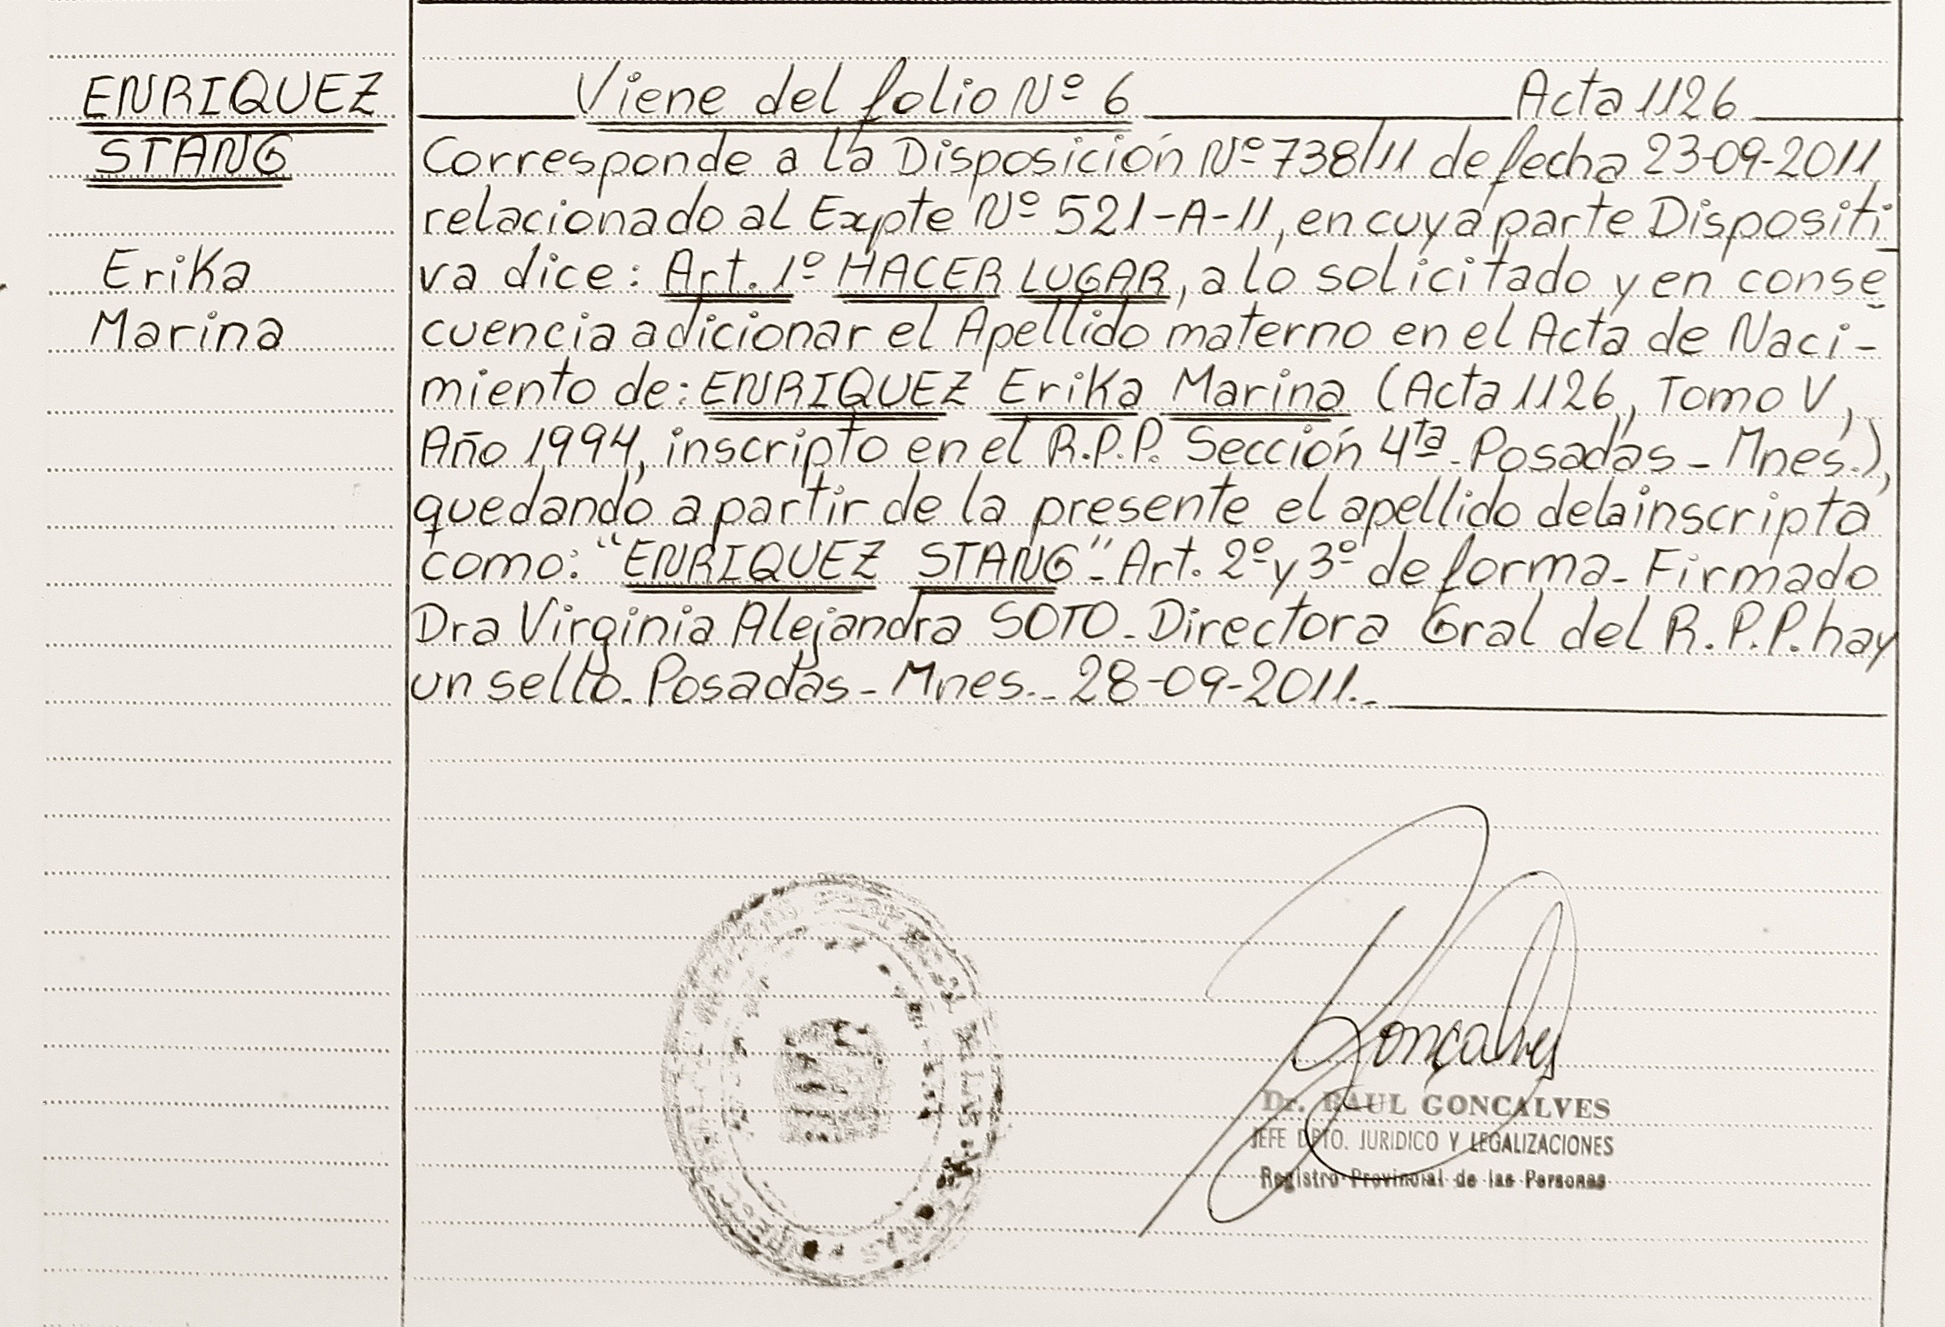 ENRIQUEZ
STANG
Erika
Marina
Viene del folio Nº 6 Acta 1126
Corresponde a la Disposición Nº 738/11 de fecha 23-09-2011
relacionado al Expte Nº 521-A-11, en cuya parte Dispositi
va dice: Art. 1º HACER LUGAR, a lo solicitado y en conse
cuencia adicionar el Apellido materno en el Acta de Naci-
miento de: ENRIQUEZ Erika Marina (Acta 1126, Tomo V,
Año 1994, inscripto en el R.P.P. Sección 4ta - Posadas - Mnes.),
quedando a partir de la presente el apellido de la inscripta
como: "ENRIQUEZ STANG" - Art. 2º y 3º de forma - Firmado
Dra Virginia Alejandra SOTO - Directora Gral del R.P.P. hay
un sello - Posadas - Mnes. - 28-09-2011. -
Goncalves
Dr. RAUL GONCALVES
JEFE DPTO. JURIDICO Y LEGALIZACIONES
Registro Provincial de las Personas